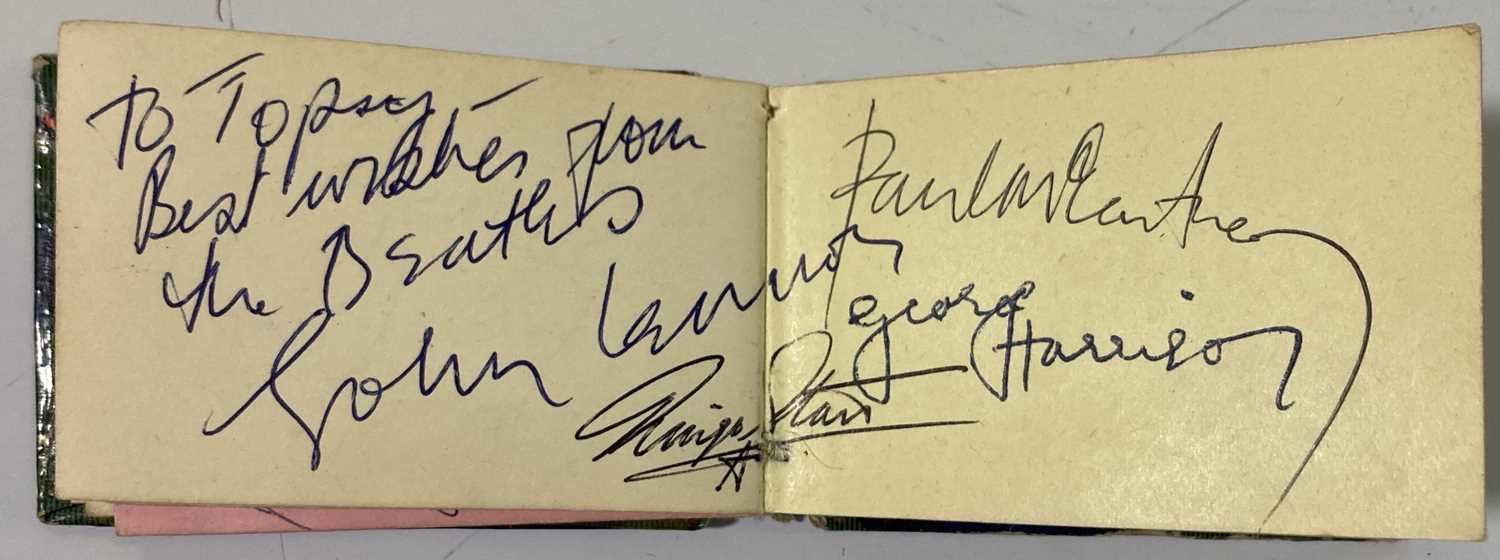 To Topsy -
Best wishes from
the Beatles
John Lennon
Ringo Starr
Paul McCartney
George
Harrison